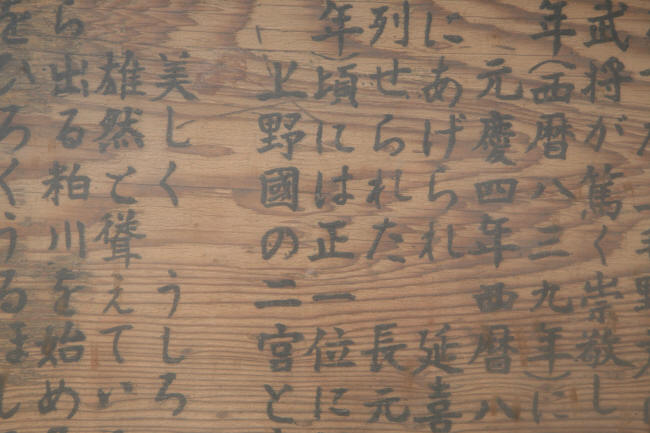 毛野
武将が篤く崇敬し
年(西暦八三九年)に
元慶四年西暦八
にあげられ 延喜
列せられた 長元
年)頃には正一位に
、上野國の二宮と
美しく うしろ
雄然と聳えてい
ら出る粕川を始め
をひろくうるほし